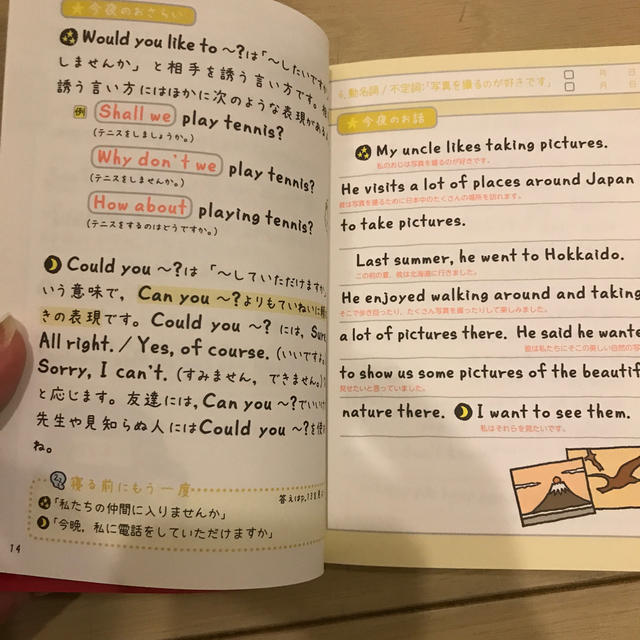 ★今夜のおさらい
Would you like to ～?は「～したいですか
しませんか」と相手を誘う言い方です。
誘う言い方にはほかに次のような表現がある
例 Shall we play tennis?
(テニスをしましょうか。)
Why don't we play tennis?
(テニスをしませんか。)
How about playing tennis?
(テニスをするのはどうですか。)
Could you ～?は「～していただけますか
いう意味で, Can you ～?よりもていねいに
きの表現です。Could you ～? には, Sure
All right. / Yes, of course. (いいですよ
Sorry, I can't. (すみません, できません。)
と応じます。友達には, Can you ～?でいい
先生や見知らぬ人にはCould you ～?を使
ね。
寝る前にもう一度
答えはp.13を見
「私たちの仲間に入りませんか」
「今晩, 私に電話をしていただけますか」
14
4. 動名詞／不定詞:「写真を撮るのが好きです」
月 日
月 日
★今夜のお話
My uncle likes taking pictures.
私のおじは写真を撮るのが好きです。
He visits a lot of places around Japan
彼は写真を撮るために日本中のたくさんの場所を訪れます。
to take pictures.
Last summer, he went to Hokkaido.
この前の夏, 彼は北海道に行きました。
He enjoyed walking around and taking
そこで歩き回ったり, たくさん写真を撮ったりして楽しみました。
a lot of pictures there. He said he wante
彼は私たちにそこの美しい自然の写
to show us some pictures of the beautif
見せたいと言っていました。
nature there. I want to see them.
私はそれらを見たいです。